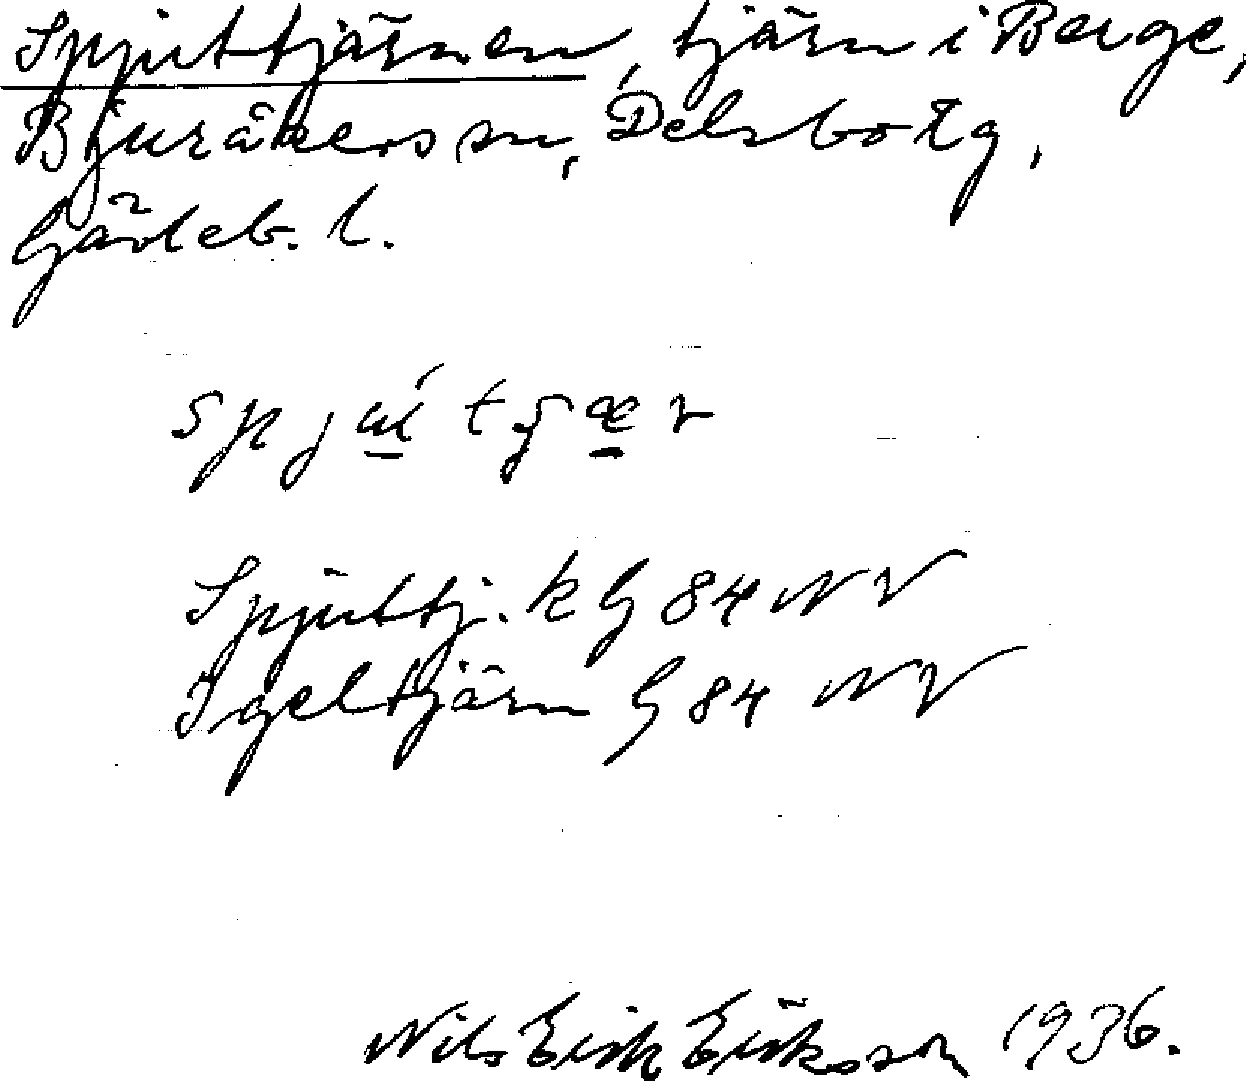 Spjuttjärnen, tjärn i Berge,
Bjuråkers sn, Delsbo tg,
Gävleb. l.
spjút tjær
Spjuttj. k G 84 NV
Igeltjärn G 84 NV
Nils Erik Eriksson 1936.